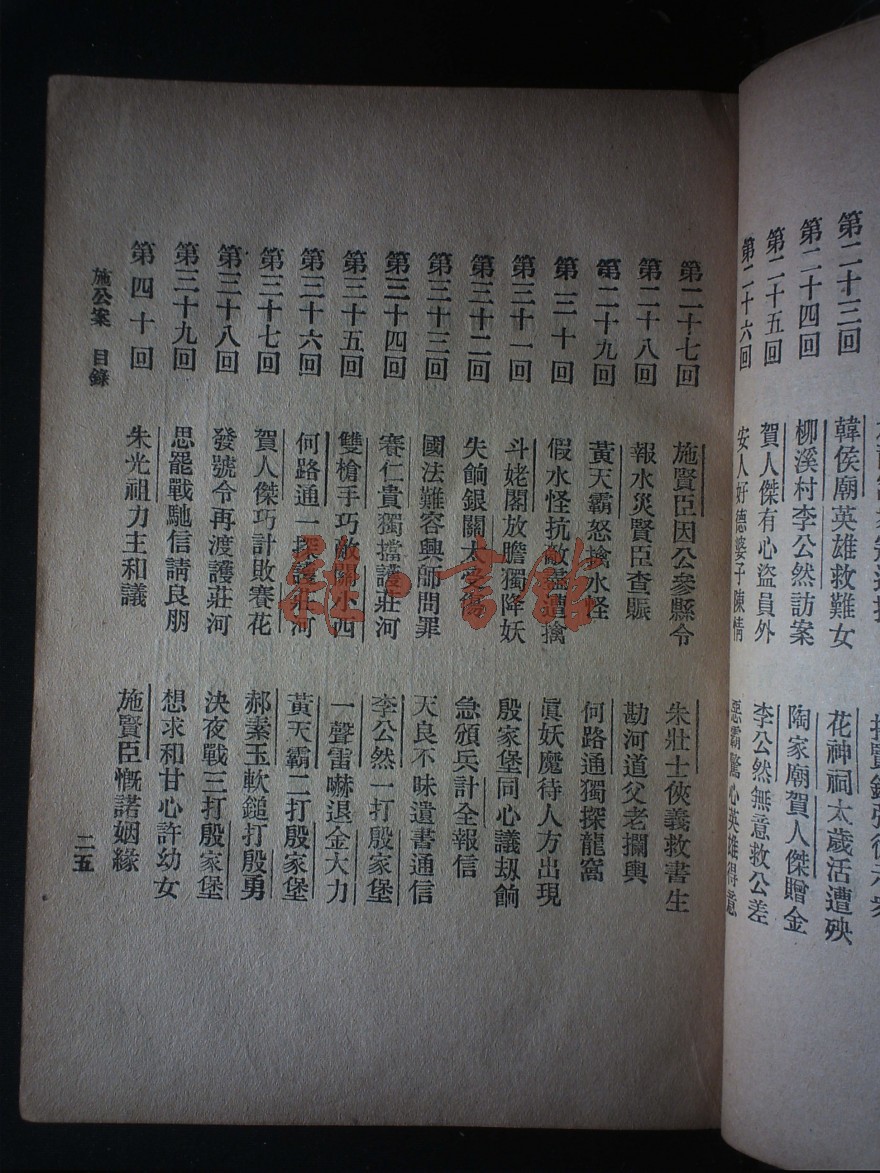 第二十三回 韓侯廟英雄救難女 花神祠太歲活遭殃
第二十四回 柳溪村李公然訪案 陶家廟賀人傑贈金
第二十五回 賀人傑有心盜員外 李公然無意救公差
第二十六回 安人好德婆子陳情 惡霸驚心英雄得意
第二十七回 施賢臣因公參縣令 朱壯士俠義救書生
第二十八回 報水災賢臣查賑 勘河道父老攔輿
第二十九回 黃天霸怒擒水怪 何路通獨探龍窩
第三十回 假水怪抗敵盡遭擒 眞妖魔待人方出現
第三十一回 斗姥閣放膽獨降妖 殷家堡同心議刼餉
第三十二回 失餉銀關太受傷 急頒兵計全報信
第三十三回 國法難容興師問罪 天良不昧遺書通信
第三十四回 賽仁貴獨擋護莊河 李公然一打殷家堡
第三十五回 雙槍手巧敵關小西 一聲雷嚇退金大力
第三十六回 何路通一探護莊河 黃天霸二打殷家堡
第三十七回 賀人傑巧計敗賽花 郝素玉軟鎚打殷勇
第三十八回 發號令再渡護莊河 決夜戰三打殷家堡
第三十九回 思罷戰馳信請良朋 想求和甘心許幼女
第四十回 朱光祖力主和議 施賢臣慨諾姻緣
施公案 目錄
二五
雜·書館